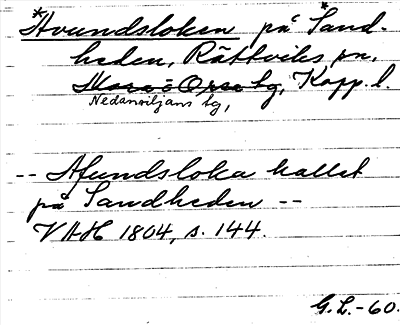 *Avundsloken på *Sand-
heden, Rättviks sn,
Mora o Orsa tg, Kopp. l.
Nedansiljans tg,
-- Afundsloka kallet
på Sandheden --
VAH 1804, s. 144.
G.L.-60.